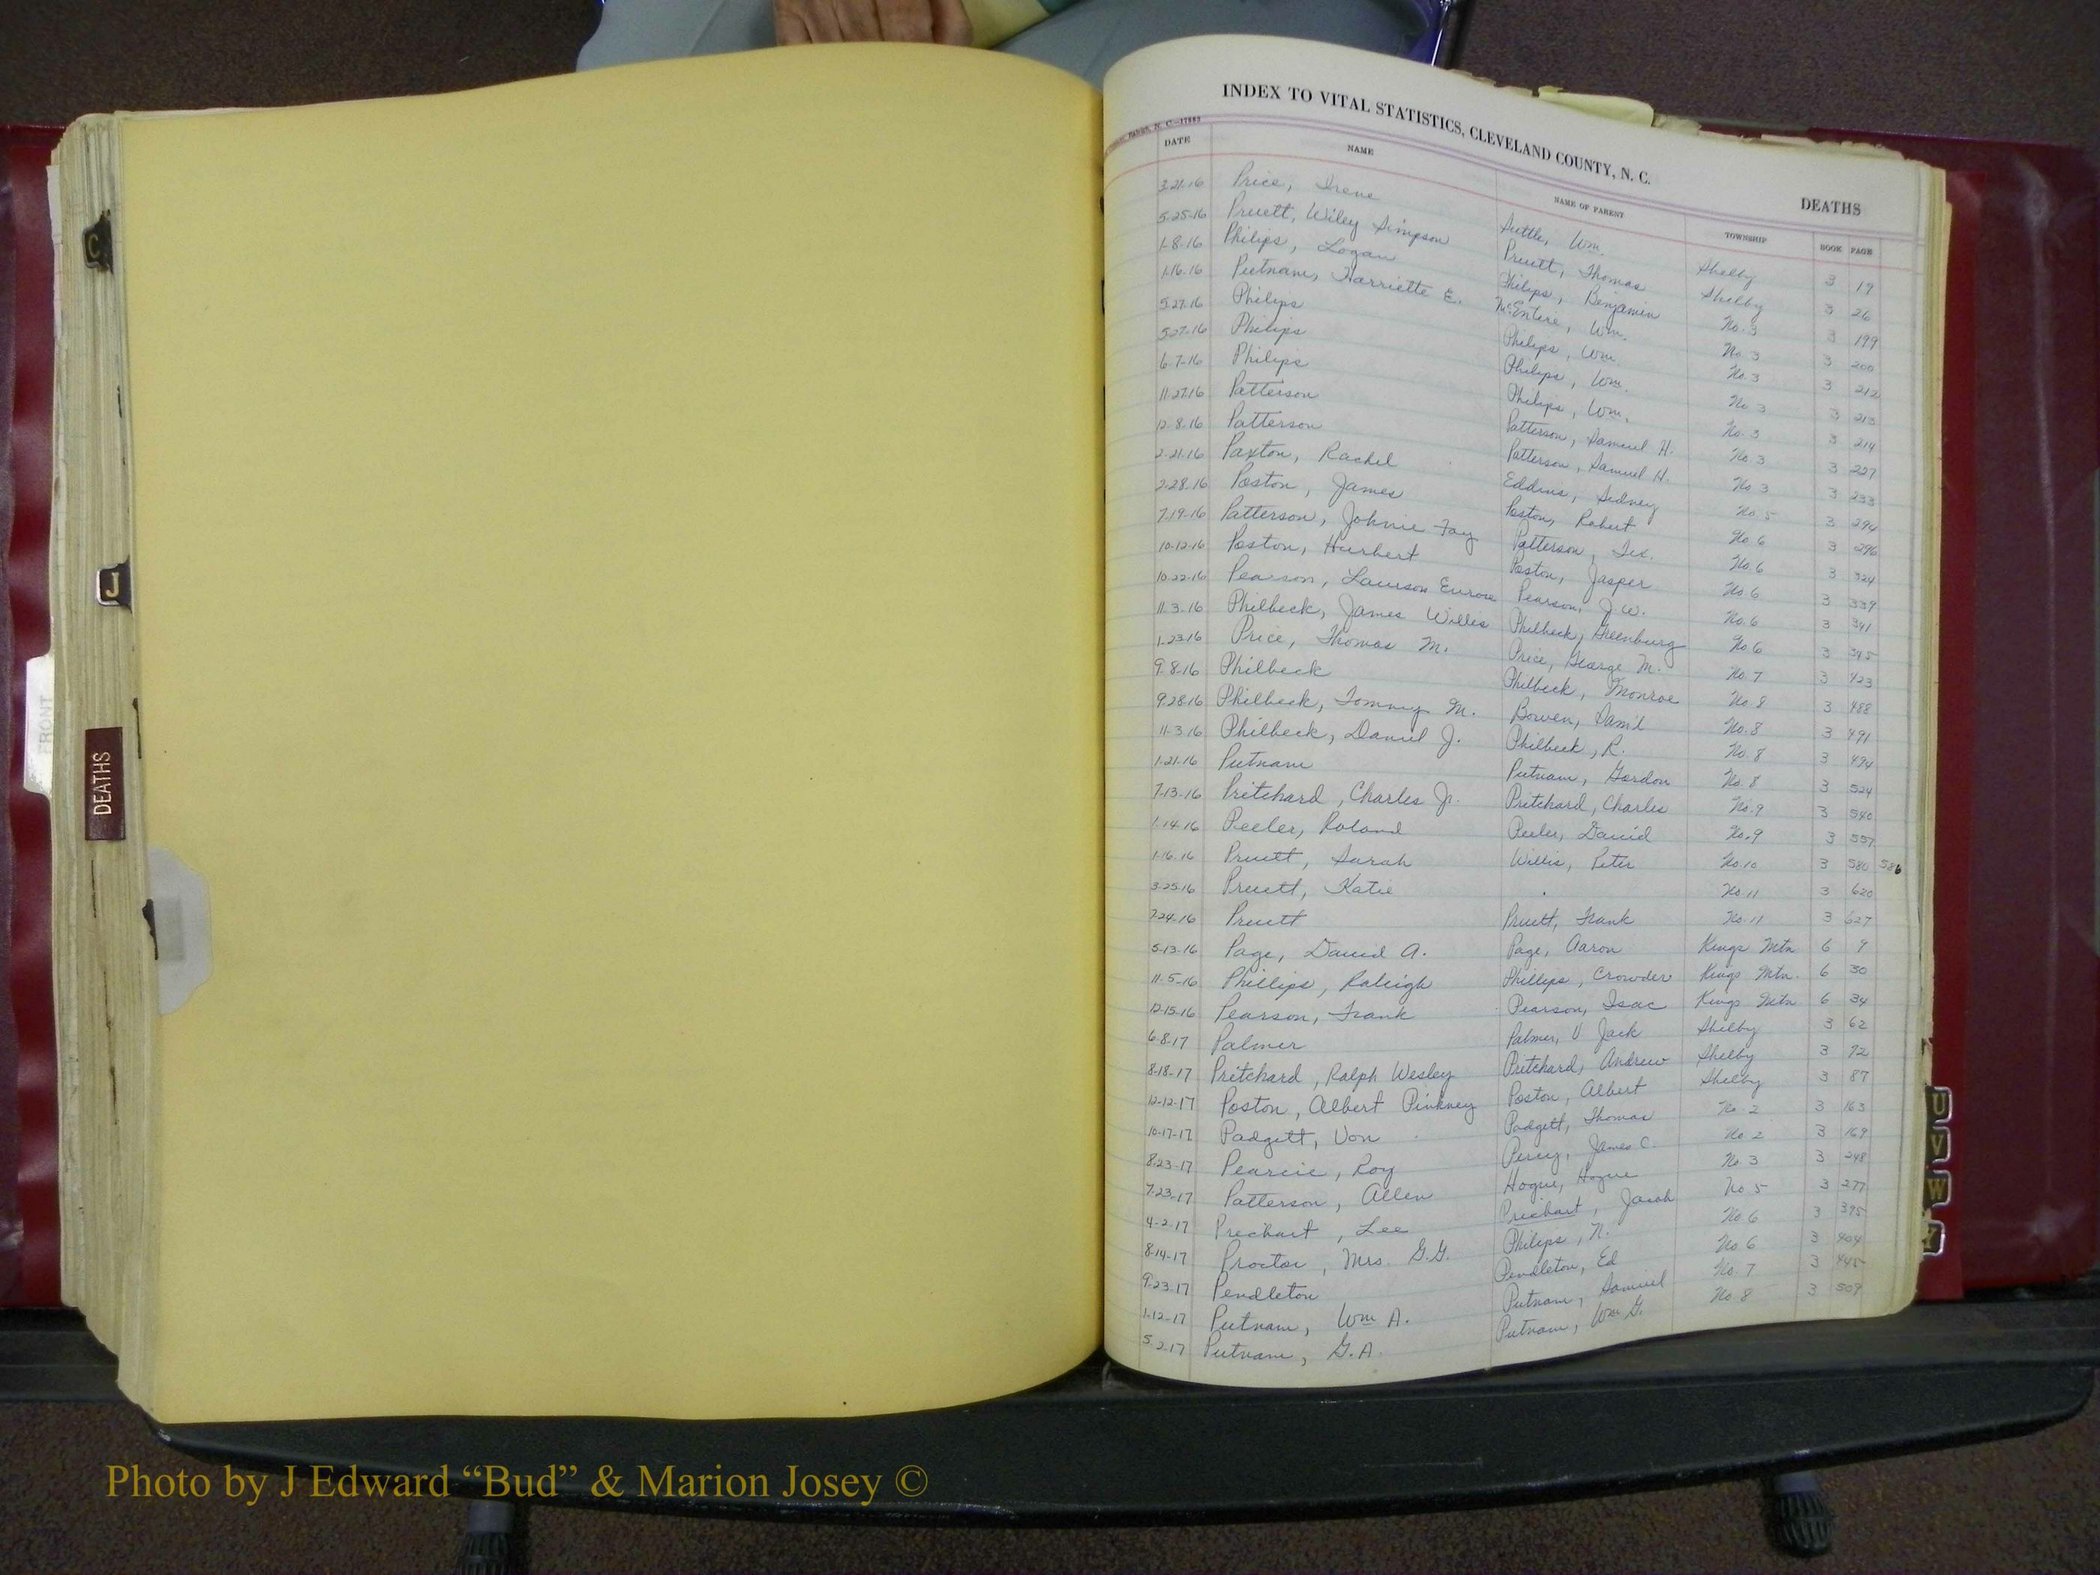 INDEX TO VITAL STATISTICS, CLEVELAND COUNTY, N. C.
DEATHS
DATE NAME NAME OF PARENT TOWNSHIP BOOK PAGE
3-21-16 Price, Irene Suttle, Wm. Shelby 3 19
5-25-16 Pruett, Wiley Simpson Pruett, Thomas Shelby 3 26
1-8-16 Philips, Logan Philips, Benjamin No. 3 3 199
1-16-16 Putnam, Harriette E. McEntire, Wm. No 3 3 200
5-27-16 Philips Philips, Wm No. 3 3 212
5-27-16 Philips Philips, Wm. No 3 3 213
6-7-16 Philips Philips, Wm. No. 3 3 214
11-27-16 Patterson Patterson, Samuel H. No. 3 3 227
12-8-16 Patterson Patterson, Samuel H. No 3 3 233
2-21-16 Paxton, Rachel Eddins, Sidney No. 5 3 294
2-28-16 Poston, James Poston, Robert No. 6 3 296
7-19-16 Patterson, Johnie Fay Patterson, Tex. No. 6 3 324
10-12-16 Poston, Hurbert Poston, Jasper No 6 3 339
10-22-16 Pearson, Lawson Pearson, J. W. No. 6 3 341
11-3-16 Philbeck, James Willis Philbeck, Greenburg No 6 3 345
1-23-16 Price, Thomas M. Price, George M. No. 7 3 423
9-8-16 Philbeck Philbeck, Monroe No. 8 3 488
9-28-16 Philbeck, Tommy M. Bowen, Sam'l No. 8 3 491
11-3-16 Philbeck, Daniel J. Philbeck, R. No 8 3 494
1-21-16 Putnam Putnam, Gordon No. 8 3 524
7-13-16 Pritchard, Charles Jr. Pritchard, Charles No. 9 3 540
1-14-16 Peeler, Roland Peeler, David No. 9 3 557
1-16-16 Pruett, Sarah Willis, Peter No. 10 3 580 586
3-25-16 Pruett, Katie No. 11 3 620
7-24-16 Pruett Pruett, Frank No. 11 3 627
5-13-16 Page, David A. Page, Aaron Kings Mtn 6 9
11-5-16 Phillips, Raleigh Phillips, Crowder Kings Mtn. 6 30
12-15-16 Pearson, Frank Pearson, Isac Kings Mtn 6 34
6-8-17 Palmer Palmer, Jack Shelby 3 62
8-18-17 Pritchard, Ralph Wesley Pritchard, Andrew Shelby 3 72
12-12-17 Poston, Albert Pinkney Poston, Albert Shelby 3 87
10-17-17 Padgett, Von Padgett, Thomas No. 2 3 163
8-23-17 Pearcie, Roy Percy, James C. No 2 3 169
7-23-17 Patterson, Allen Hogue, Hogue No. 3 3 248
4-2-17 Prechart, Lee Prichart, Jacob No 5 3 277
8-14-17 Proctor, Mrs. G.G. Philips, N. No 6 3 395
9-23-17 Pendleton Pendleton, Ed No 6 3 404
1-12-17 Putnam, Wm A. Putnam, Samuel No. 7 3 445
5-2-17 Putnam, G.A. Putnam, Wm G. No 8 3 509
C
J
FRONT
DEATHS
U
V
W
Photo by J Edward “Bud” & Marion Josey ©